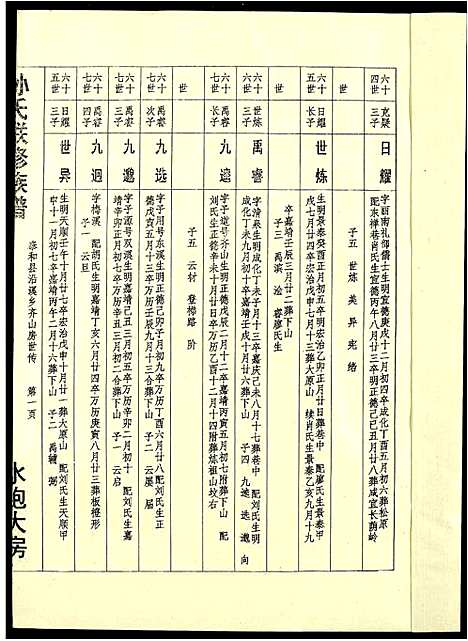 六十四世
克疑三子
日耀
字丽南礼部儒士生明宣德庚戌十二月初四卒明弘治六葬松原
配东禅巷肖氏生宣德丙午八月廿三卒明正德己巳五月廿八葬成宜长荫岭
子五 世炼 美 异 宪 绪
世
六十五世
日耀长子
世炼
生明景泰癸酉正月初五卒明宏治乙卯正月廿日葬巷中 配廖氏生景泰甲
戌七月廿四卒宏治戊申七月十三葬大原山 续肖氏生景泰乙亥九月十九
卒嘉靖壬辰三月廿二葬下山
子三 禹滨 淦 睿廖氏生
世
六十六世
世炼三子
禹睿
字清泉生明成化丁未子月十三卒嘉庆己未八月十七葬巷中 配刘氏生明
成化丁未九月初十卒嘉靖壬戌十月廿六葬下山 子四 九逵 选 邀 向
六十七世
禹睿长子
九逵
字子道号齐山生明正德戊辰二月十二卒嘉靖丙寅五月初七附葬下山 配
刘氏生正德辛未十一月初五卒万历乙酉十二月十四附葬炼祖山坟右
子五 云材 登 楼 路 阶
世
六十七世
禹睿次子
九选
字子用号东溪生明正德己卯子月初九卒万历丁酉六月廿八配刘氏生正
德戊寅五月十三卒万历壬辰九月十三葬下山 子二 云屡 届
六十七世
禹睿三子
九邀
字子源号双溪生明嘉靖癸未五月初六卒万历辛卯二月初十 配刘氏生嘉
靖辛卯正月初七卒万历辛丑三月初三合葬下山 子一 云启
六十七世
禹睿四子
九迥
字梅溪 配胡氏生明嘉靖丁亥六月廿四卒万历庚寅八月廿三葬板橙形
子一 云旦
六十五世
日耀三子
世异
生明天顺壬午十月廿七卒宏治戊申十月廿一葬大原山 配刘氏生天顺甲
申十一月初五卒嘉靖丙午二月十六葬下山 子二 禹辅 弼
孙氏联修族谱
泰和县沿溪乡齐山房世传 第一页
水抱大房